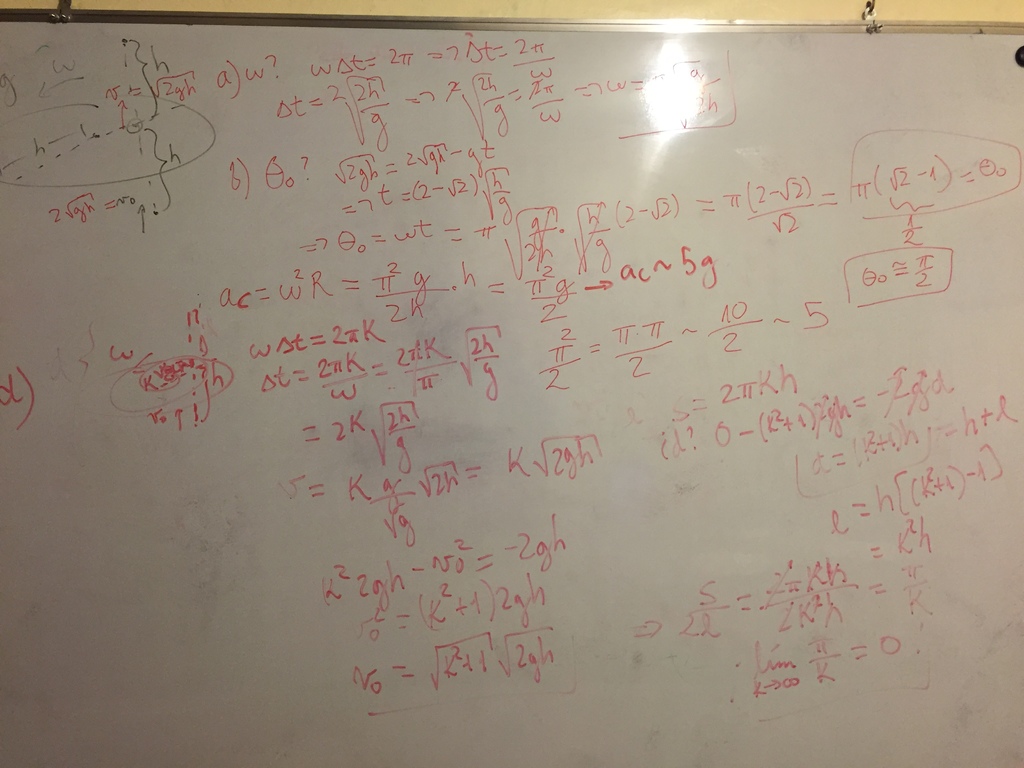 ω
h
v = √2gh
h
h
2√gh = v₀
a) ω? ωΔt = 2π => Δt = 2π/ω
Δt = 2√(2h/g) => 2√(2h/g) = 2π/ω => ω = π√(g/2h)
b) θ₀? √2gh = 2√gh - gt
=> t = (2-√2)√(h/g)
=> θ₀ = ωt = π√(g/2h) · √(h/g) (2-√2) = π(2-√2)/√2 = π(√2-1) = θ₀
1/2
θ₀ ≅ π/2
ac = ω²R = π²g/2h · h = π²g/2 → ac ~ 5g
π²/2 = π·π/2 ~ 10/2 ~ 5
d)
ω
h
v₀
ωΔt = 2πK
Δt = 2πK/ω = 2πK/π √(2h/g)
= 2K√(2h/g)
v = K g/√g √2h = K√2gh
K² 2gh - v₀² = -2gh
v₀² = (K²+1)2gh
v₀ = √K²+1 √2gh
s = 2πKh
¿d? 0 - (K²+1)2gh = -2gd
d = (K²+1)h = h+l
l = h[(K²+1)-1]
= K²h
=> s/2l = 2πKh/2K²h = π/K
lím K→∞ π/K = 0